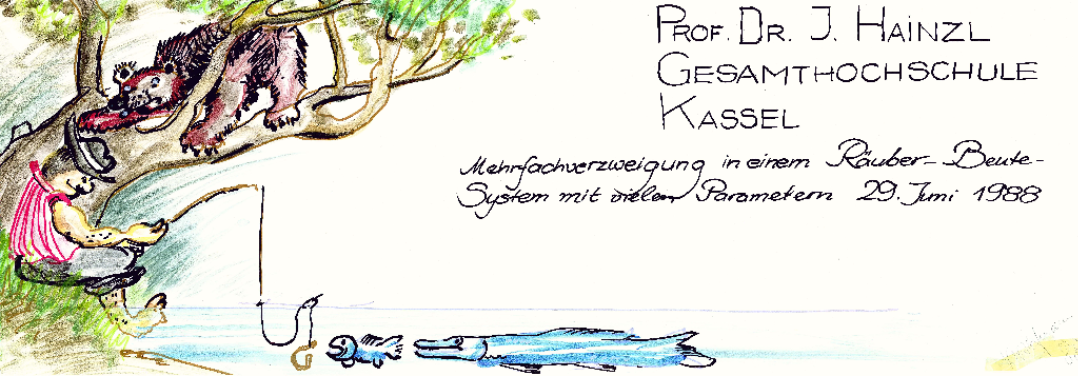 PROF. DR. J. HAINZL
GESAMTHOCHSCHULE
KASSEL
Mehrfachverzweigung in einem Räuber-Beute-
System mit vielen Parametern 29. Juni 1988